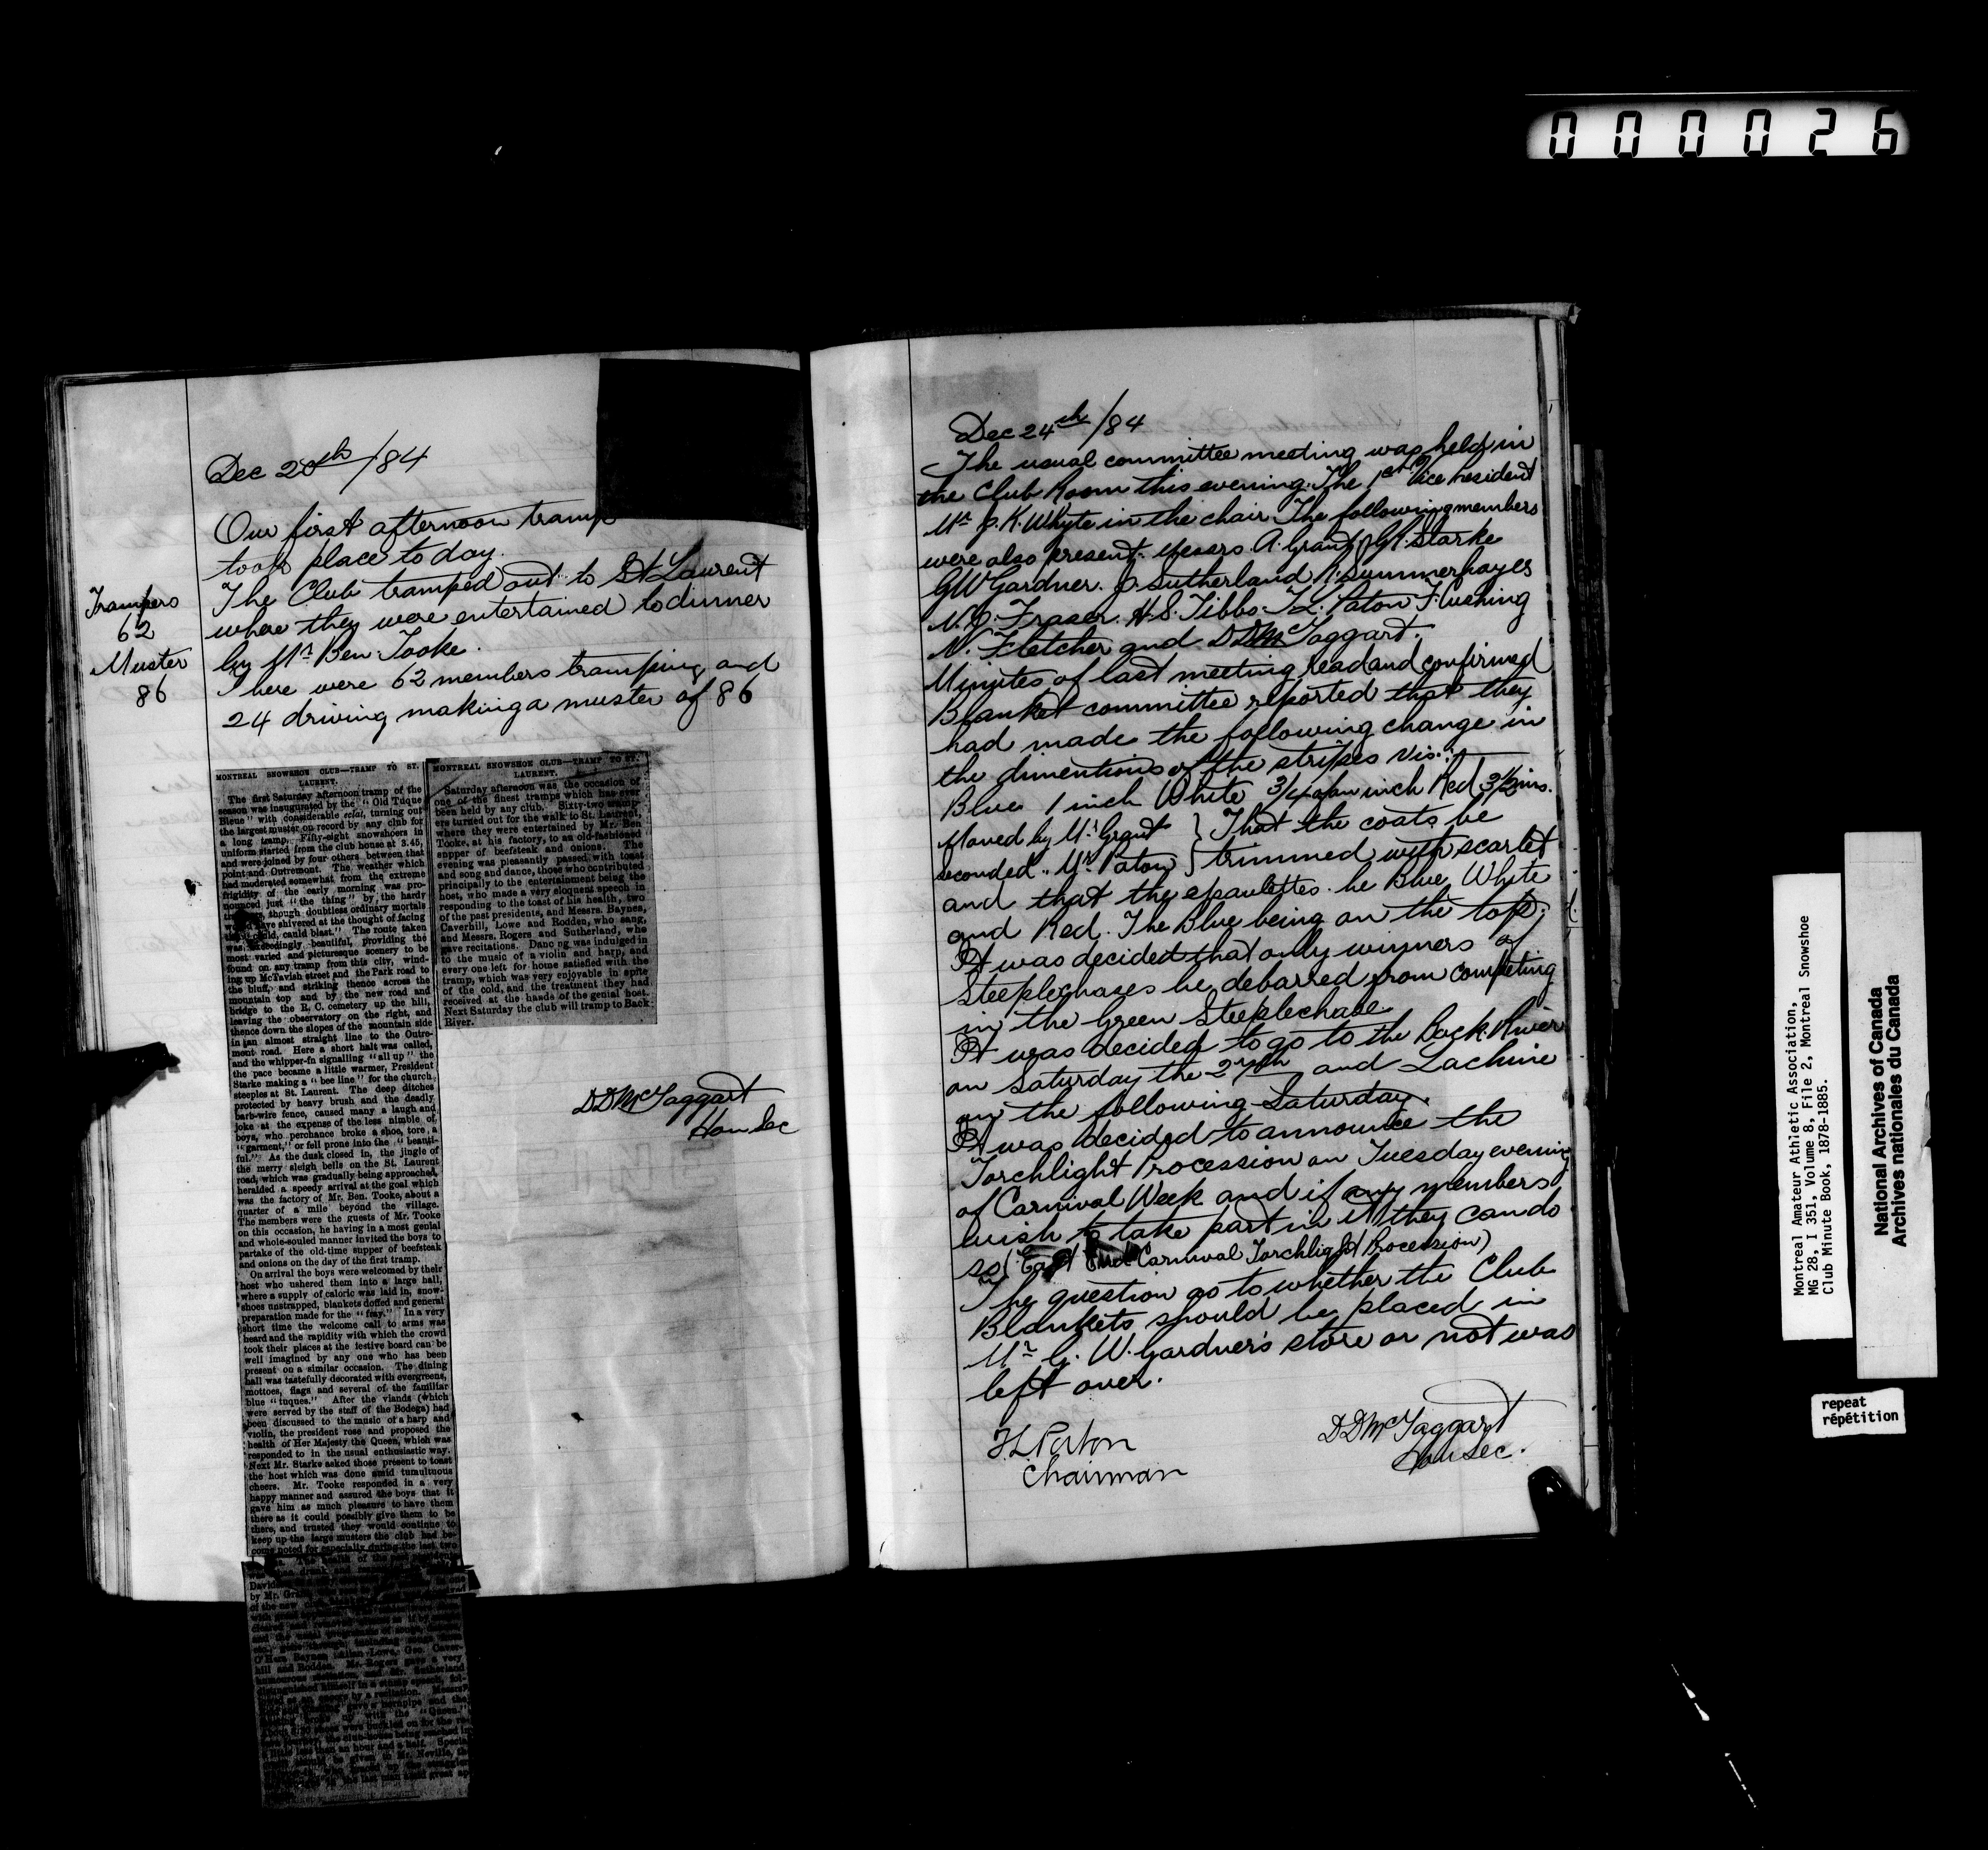 000026
Dec 20th/84
Our first afternoon tramp
took place to day.
The Club tramped out to St Laurent
where they were entertained to dinner
by Mr Ben Tooke.
There were 62 members tramping and
24 driving making a muster of 86
Trampers
62
Muster
86
MONTREAL SNOWSHOE CLUB—TRAMP TO ST.
LAURENT.
The first Saturday afternoon tramp of the
season was inaugurated by the "Old Tuque
Bleue" with considerable eclat, turning out
the largest muster on record by any club for
a long tramp. Fifty-eight snowshoers in
uniform started from the club house at 3.45,
and were joined by four others between that
point and Outremont. The weather which
had moderated somewhat from the extreme
frigidity of the early morning was pro-
nounced just "the thing" by the hardy
though doubtless ordinary mortals
would have shivered at the thought of facing
cauld, cauld blast." The route taken
was exceedingly beautiful, providing the
most varied and picturesque scenery to be
found on any tramp from this city, wind-
ing up McTavish street and the Park road to
the bluff, and striking thence across the
mountain top and by the new road and
bridge to the R. C. cemetery up the hill,
leaving the observatory on the right, and
thence down the slopes of the mountain side
in an almost straight line to the Outre-
ment road. Here a short halt was called,
and the whipper-in signalling "all up" the
the pace became a little warmer, President
Starke making a "bee line" for the church
steeples at St. Laurent. The deep ditches
protected by heavy brush and the deadly
barb-wire fence, caused many a laugh and
joke at the expense of the less nimble of
boys, who perchance broke a shoe, tore a
"garment," or fell prone into the "beauti-
ful." As the dusk closed in, the jingle of
the merry sleigh bells on the St. Laurent
road, which was gradually being approached,
heralded a speedy arrival at the goal which
was the factory of Mr. Ben. Tooke, about a
quarter of a mile beyond the village.
The members were the guests of Mr. Tooke
on this occasion, he having in a most genial
and whole-souled manner invited the boys to
partake of the old-time supper of beefsteak
and onions on the day of the first tramp.
On arrival the boys were welcomed by their
host who ushered them into a large hall,
where a supply of caloric was laid in, snow-
shoes unstrapped, blankets doffed and general
preparation made for the "fray." In a very
short time the welcome call to arms was
heard and the rapidity with which the crowd
took their places at the festive board can be
well imagined by any one who has been
present on a similar occasion. The dining
hall was tastefully decorated with evergreens,
mottoes, flags and several of the familiar
blue "tuques." After the viands (which
were served by the staff of the Bodega) had
been discussed to the music of a harp and
violin, the president rose and proposed the
health of Her Majesty the Queen, which was
responded to in the usual enthusiastic way.
Next Mr. Starke asked those present to toast
the host which was done amid tumultuous
cheers. Mr. Tooke responded in a very
happy manner and assured the boys that it
gave him as much pleasure to have them
there as it could possibly give them to be
there, and trusted they would continue to
keep up the large musters the club had be-
come noted for especially during the last two
health of the
David
by Mr. Gr
of the new
O'Hara Baynes, Allan Lowe, Geo. Caver-
hill and Rodden. Mr. Rogers gave a very
humorous recitation, and Mr. Sutherland
distinguished himself in a stump speech, fol-
by a recitation. Messrs.
gave a hornpipe and the
with the "Queen."
were buckled on for the
the club-house being reached in
less than an hour and a half. Special
Mr. Neville,
MONTREAL SNOWSHOE CLUB—TRAMP TO ST.
LAURENT.
Saturday afternoon was the occasion of
one of the finest tramps which has ever
been held by any club. Sixty-two tramp-
ers turned out for the walk to St. Laurent,
where they were entertained by Mr. Ben
Tooke, at his factory, to an old-fashioned
supper of beefsteak and onions. The
evening was pleasantly passed with toast
and song and dance, those who contributed
principally to the entertainment being the
host, who made a very eloquent speech in
responding to the toast of his health, two
of the past presidents, and Messrs. Baynes,
Caverhill, Lowe and Rodden, who sang,
and Messrs. Rogers and Sutherland, who
gave recitations. Danc ng was indulged in
to the music of a violin and harp, and
every one left for home satisfied with the
tramp, which was very enjoyable in spite
of the cold, and the treatment they had
received at the hands of the genial host.
Next Saturday the club will tramp to Back
River.
DDMcTaggart
Hon Sec
Dec 24th/84
The usual committee meeting was held in
the Club Room this evening. The 1st Vice President
Mr J. K. Whyte in the chair. The following members
were also present. Messrs. A. Grant J.G.R. Starke
G W Gardner. J. Sutherland R. Summerhayes
N. J. Fraser. H. S. Tibbs. T. L. Paton F. Cushing
N. Fletcher and DDMcTaggart.
Minutes of last meeting read and confirmed
Blanket committee reported that they
had made the following change in
the dimentions of the stripes vis:
Blue 1 inch White 3/4 of an inch Red 3½ ins.
Moved by Mr Grant } That the coats be
seconded .. Mr Paton } trimmed with scarlet
and that the epaulettes be Blue White
and Red. The Blue being on the top.
It was decided that only winners of
Steeplechases be debarred from competing
in the Green Steeplechase
It was decided to go to the Back River
on Saturday the 27th and Lachine
on the following Saturday.
It was decided to announce the
Torchlight Procession on Tuesday evening
of Carnival Week and if any members
wish to take part in it they can do
so (East End Carnival Torchlight Procession)
The question as to whether the Club
Blankets should be placed in
Mr G. W. Gardner's store or not was
left over.
T.L. Paton
Chairman
DDMcTaggart
Hon Sec.
Montreal Amateur Athletic Association,
MG 28, I 351, Volume 8, File 2, Montreal Snowshoe
Club Minute Book, 1878-1885.
National Archives of Canada
Archives nationales du Canada
repeat
répétition